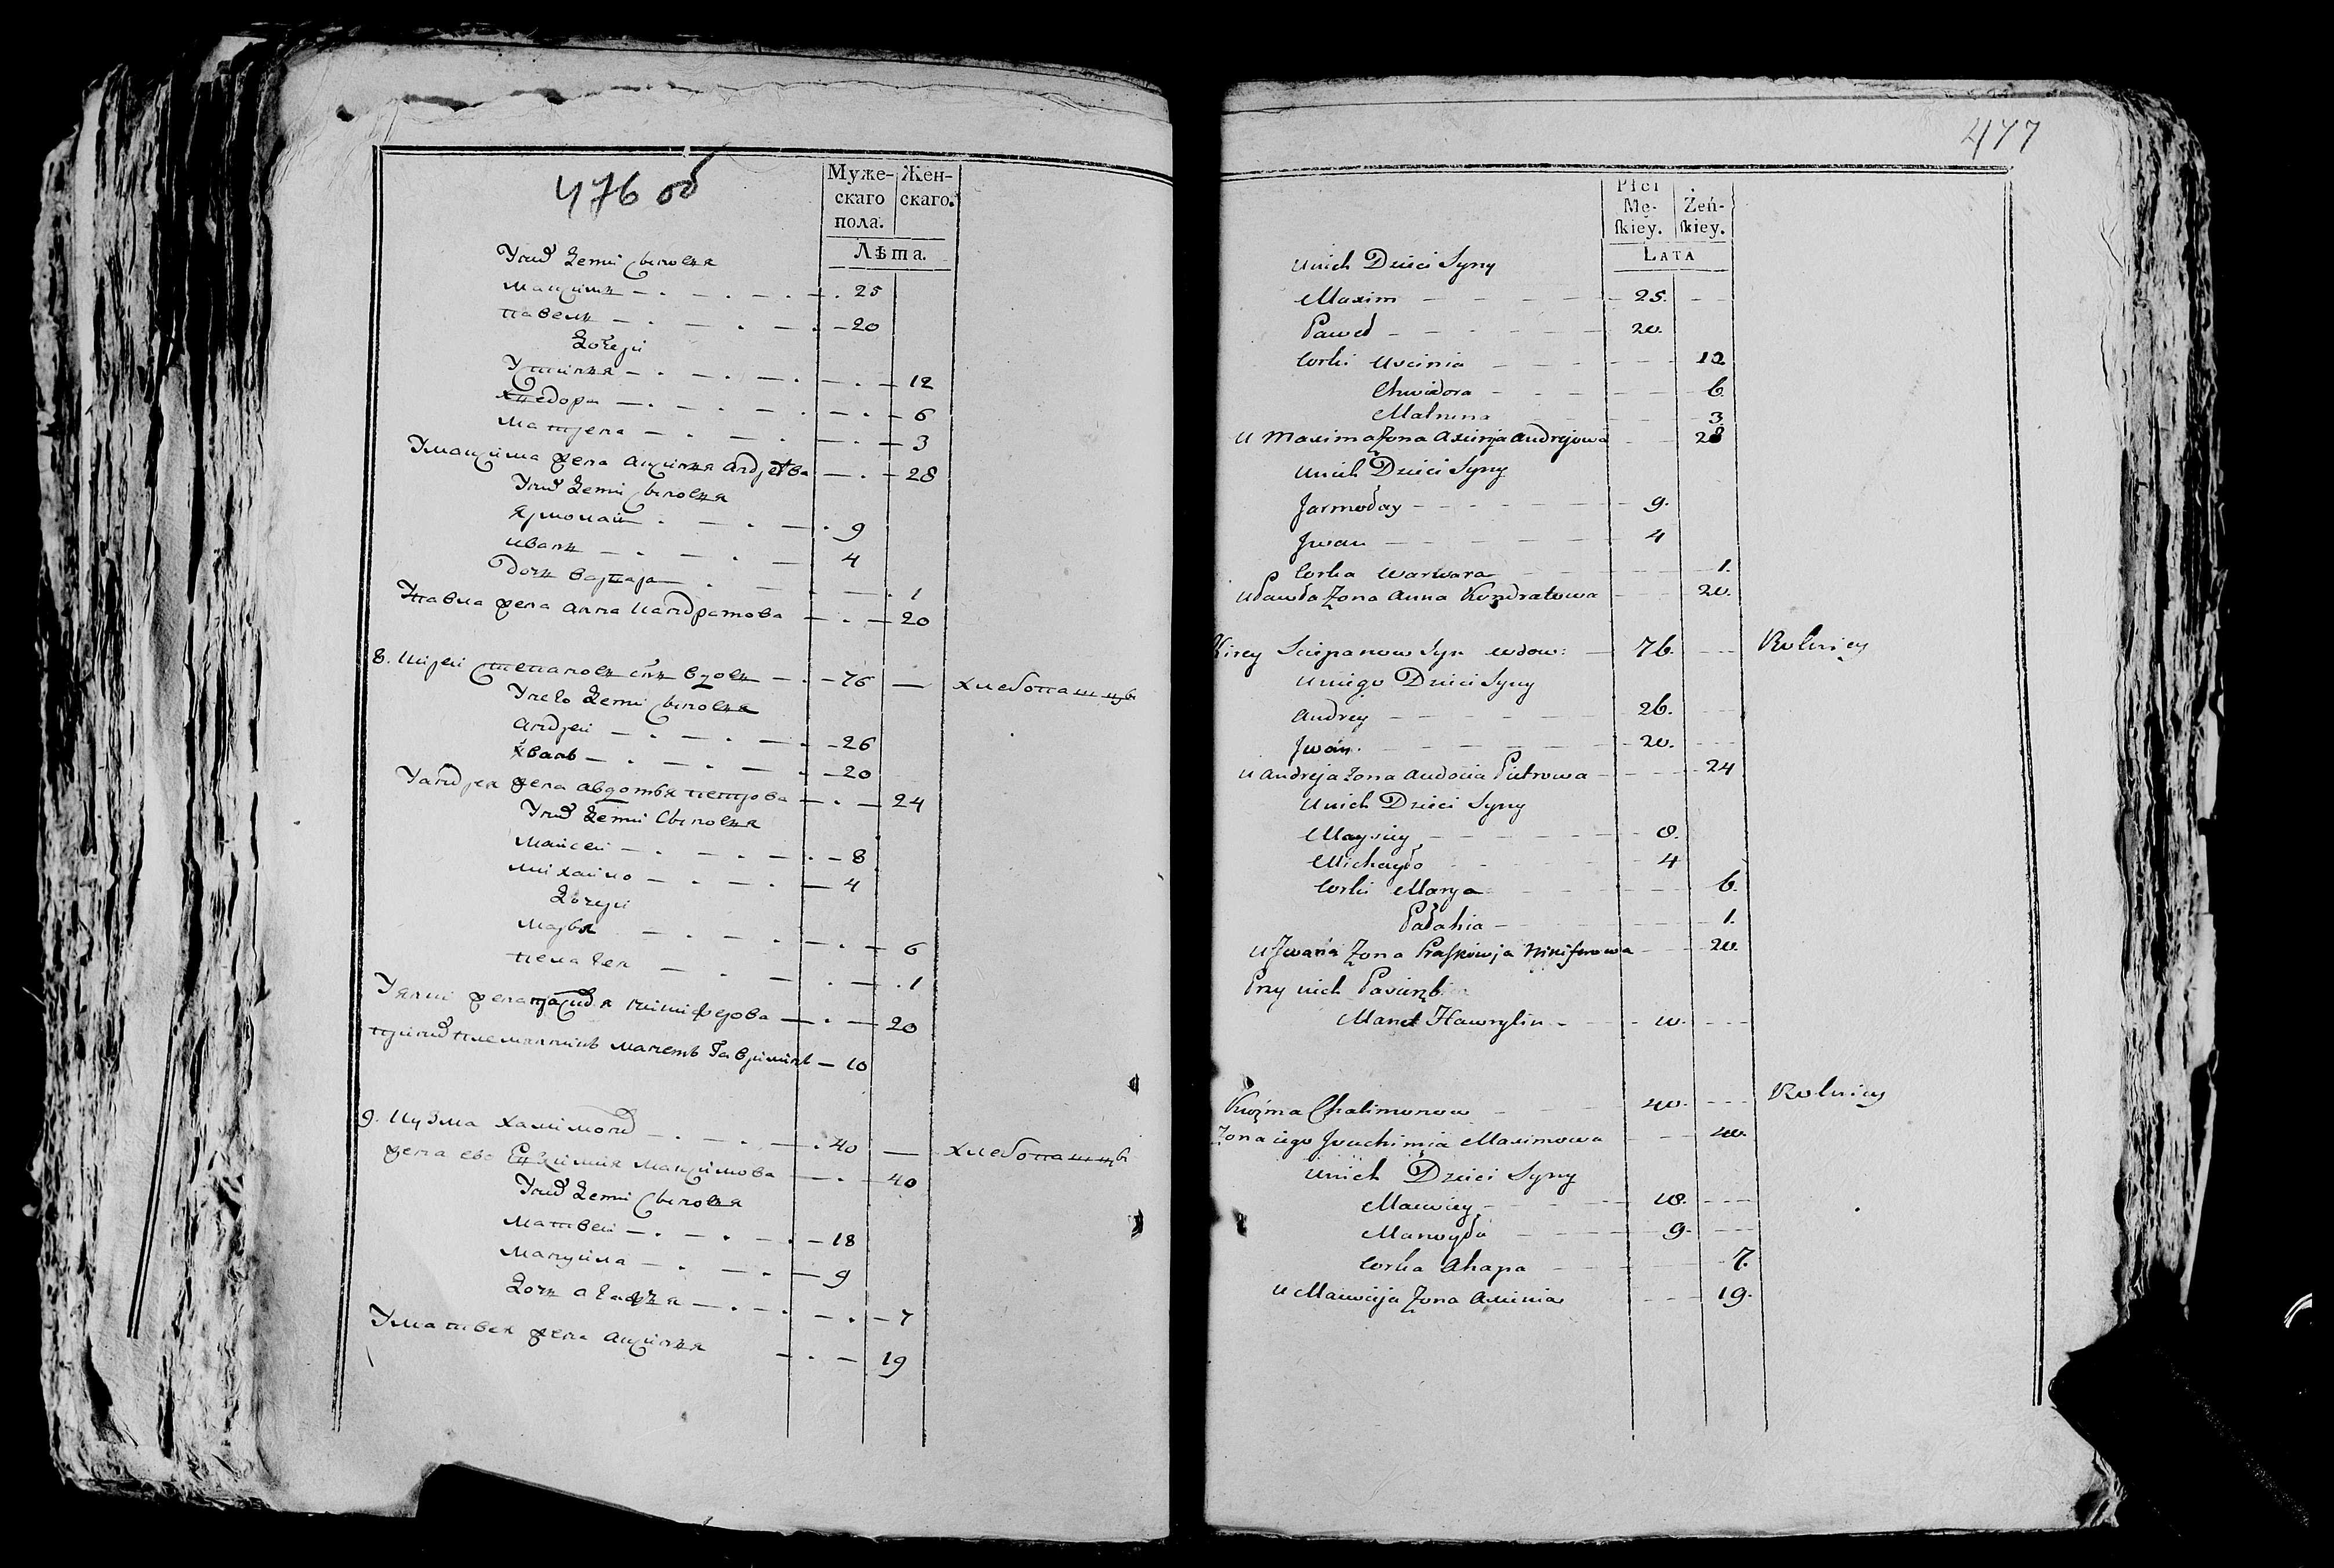 476 об
Муже-
скаго
пола.
Жен-
скаго.
Лѣта.
У них Дети Сыновья
Максимъ 25
Павелъ 20
Дочери
Устинья 12
Хведора 6
Матрена 3
У Максима жена Аксинья Андреева 28
У них Дети Сыновья
Ярмолай 9
Иванъ 4
Дочь Варвара 1
У Павла жена Анна Кандратова 20
8. Кирей Степановъ сынъ вдовъ 76 — хлебопашцы
У него Дети Сыновья
Андрей 26
Иванъ 20
У Андрея жена Авдотья Петрова 24
У них Дети Сыновья
Майсей 8
Михайло 4
Дочери
Марья 6
Пелагея 1
жена Никифорова 20
При них племянникъ Манетъ Гаврилинъ 10
9. Кузма Халимонов 40 — хлебопашцы
жена ево Ефимия Максимова 40
У них Дети Сыновья
Матвей 18
Мануйла 9
Дочь Агафья 7
У Матвея жена Аксинья 19
477
Płci
Mę-
ſkiey.
Żeń-
ſkiey.
LATA
U nich Dzieci Syny
Maxim 25.
Paweł 20.
Corki Uscinia 12
Chwidora 6.
Matruna 3.
U Maxima Zona Axinja Andrejowa 28
U nich Dzieci Syny
Jarmołay 9.
Jwan 4
Corka Warwara 1.
U Pawła Zona Anna Kondratowa 20.
Kirey Sciepanow Syn wdow: 76. Rolnicy
U niego Dzieci Syny
Andrey 26.
Jwan. 20.
U Andreja Zona Audocia Pietrowa 24
U nich Dzieci Syny
Maysiey 8.
Michayło 4
Corki Marya 6.
Pałahia 1.
U Jwana Zona Praskowja Nikiforowa 20.
Przy nich Pasierzb
Manet Hawrylin 10.
Kuźma Chalimonow 40. Rolnicy
Zona iego Jouchimia Maximowa 40.
U nich Dzieci Syny
Maciwiey 18.
Manuyła 9.
Corka Ahapa 7.
U Maciwieja Zona Axinia 19.